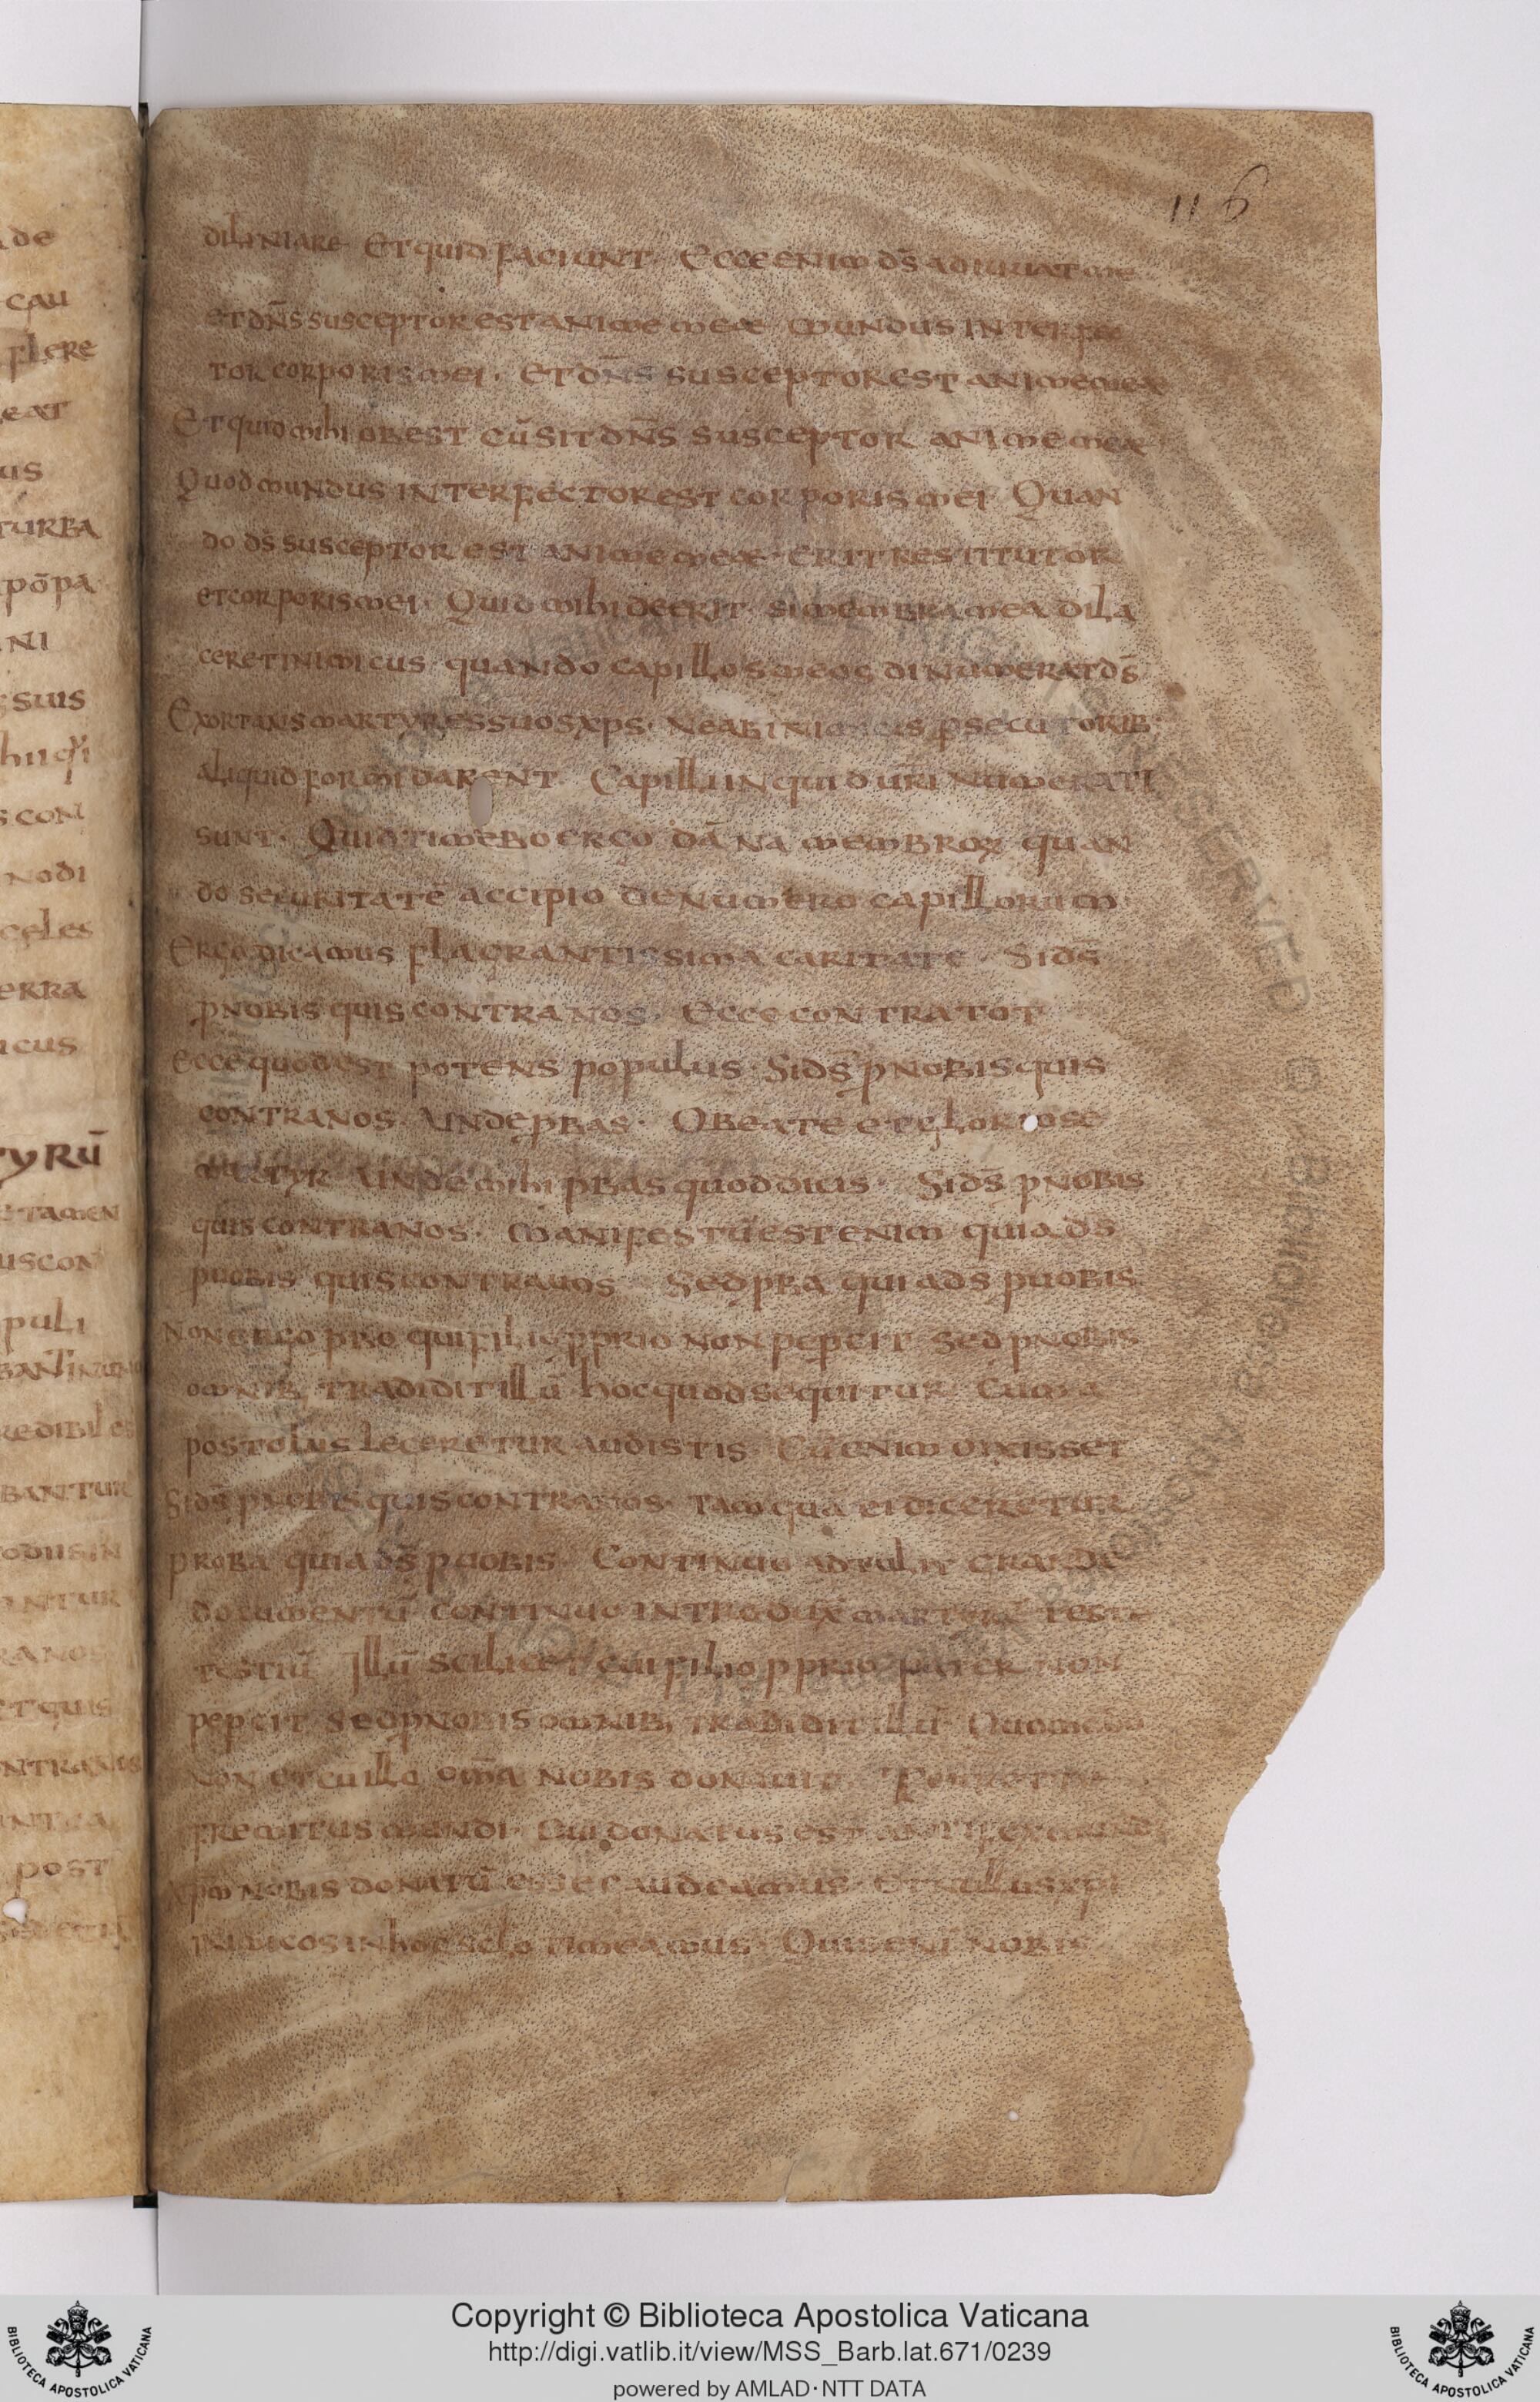 116
diliniare · Et quid faciunt · Ecce enim d̄s adiuuat me
et dn̄s susceptor est anime meae · mundus interfec
tor corporis mei · et dn̄s susceptor est anime meae
Et quid mihi obest cū sit dn̄s susceptor anime meae
Quod mundus interfector est corporis mei · Quan
do d̄s susceptor est anime meae · erit restitutor
et corporis mei · Quid mihi deerit · si membra mea dila
ceret inimicus · quando capillos meos dinumerat d̄s
Exortans martyres suos xp̄s · ne ab inimicis p̄secutorib·
aliquid formidarent · Capilli inquid ur̄i numerati
sunt · Quid timebo ergo dāna membroꝝ quan
do securitatē accipio de numero capillorum ·
Ergo dicamus flagrantissima caritate · Si d̄s
p nobis quis contra nos · Ecce contra tot
ecce quod est potens populus · Si d̄s p nobis quis
contra nos · Unde p̄bas · O beate et gloriose
martyr unde mihi p̄bas quod dicis · Si d̄s p nobis
quis contra nos · manifestū est enim quia d̄s
p uobis quis contra uos · Sed p̄ba quia d̄s p uobis
non ergo p̄bo qui filio pprio non pepcit sed p nobis
omnib; tradidit illū hoc quod sequitur · Cum a
postolus legeretur audistis · Cū enim dixisset
Si d̄s p nobis quis contra nos · tamquā ei diceretur
proba quia d̄s p uobis · Continuo adtulit grande
documentū continuo introdux martyrē teste
testiū Illū scilicet cui filio pprio pater non
pepcit sed p nobis omnib; tradidit illū · Quomodo
non et cū illo om̄a nobis donauit
fremitus mundi · Cui donatus est
xp̄m nobis donatū esse gaudeamus · et nullus xp̄i
inimicos in hoc sc̄lo timeamus · Quis enī nobis
de
cau
flere
eat
us
turba
pōpa
ni
suis
con
nodi
celes
erra
icus
yrū
tamen
us con
puli
bant
redibiles
bantur
odus in
antur
ra nos
t quis
ntra nos
post
Copyright © Biblioteca Apostolica Vaticana
http://digi.vatlib.it/view/MSS_Barb.lat.671/0239
powered by AMLAD·NTT DATA
BIBLIOTECA APOSTOLICA VATICANA
BIBLIOTECA APOSTOLICA VATICANA